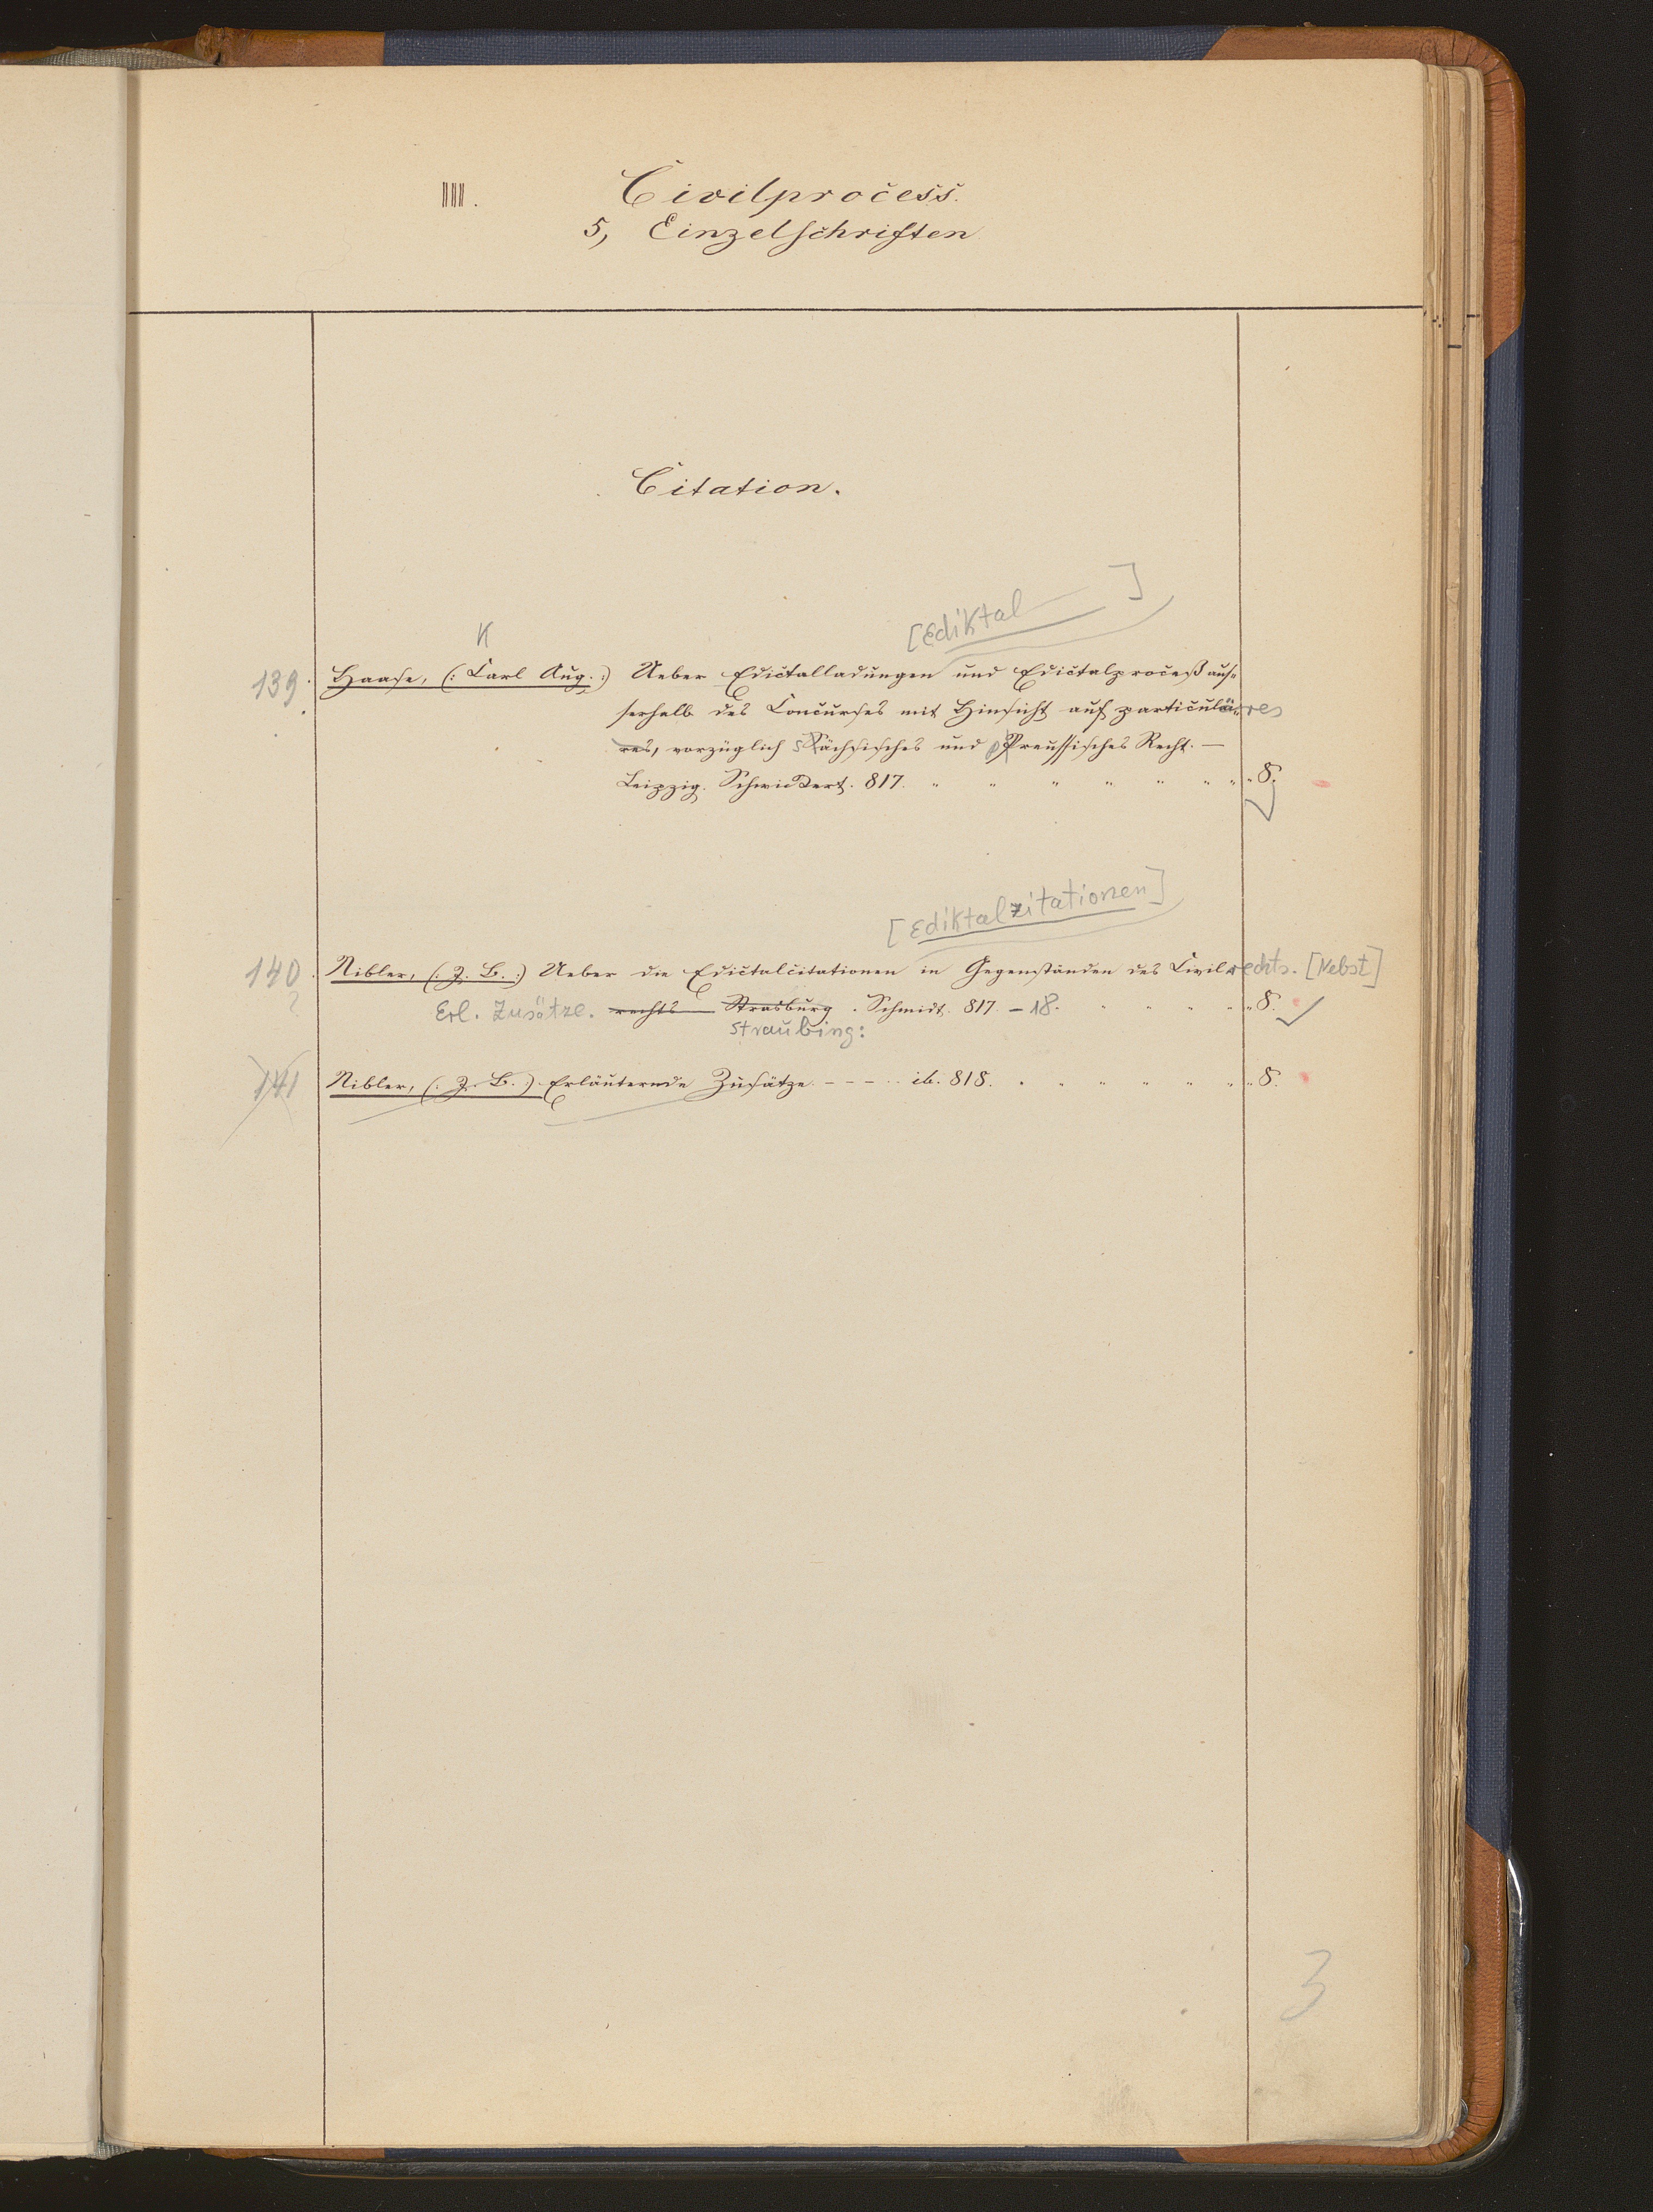 III. Civilprocess.
5, Einzelschriften
Citation.
[Ediktal ]
K
139. Haase, (: Carl Aug. :) Ueber Edictalladungen und Edictalproceß aus=
serhalb des Concurses mit Hinsicht auf particuläres
res, vorzüglich sSächsisches und pPreussisches Recht. —
Leipzig. Schwickert. 817. " " " " " " " " 8.
[Ediktalzitationen]
140. Nibler, (: J. B. :) Ueber die Edictalcitationen in Gegenständen des Civilrechts. [Nebst]
? Erl. Zusätze. rechts Strasburg . Schmidt. 817. - 18. " " " " " 8.
Straubing:
141 Nibler, (: J. B. :) Erläuternde Zusätze. - - - - ib. 818. " " " " " " " 8.
3